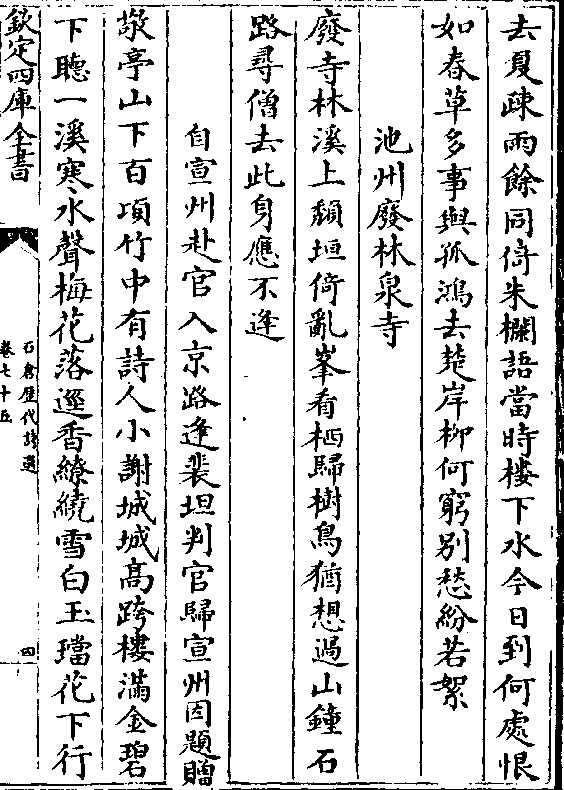 去夏疎雨餘同倚朱欄語當時樓下水今日到何處恨
如春草多事與孤鴻去楚岸柳何窮别愁紛若絮
池州廢林泉寺
廢寺林溪上頽垣倚亂峯看栖歸樹鳥猶想過山鐘石
路尋僧去此身應不逢
自宣州赴官入京路逢裴坦判官歸宣州因題贈
敬亭山下百項竹中有詩人小謝城城髙跨樓滿金碧
下聽一溪寒水聲梅花落逕香繚繞雪白玉璫花下行
欽定四庫全書
石倉歴代詩選
卷七十五
四